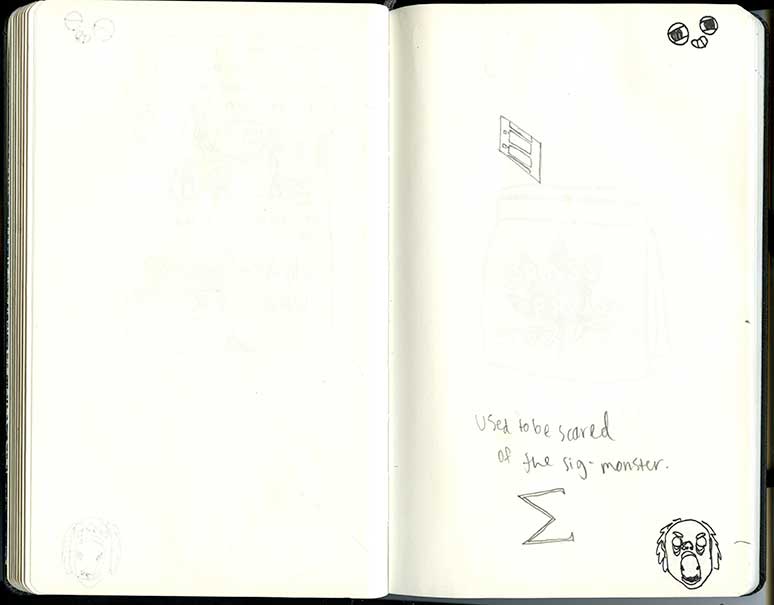 used to be scared
of the sig-monster.
Σ